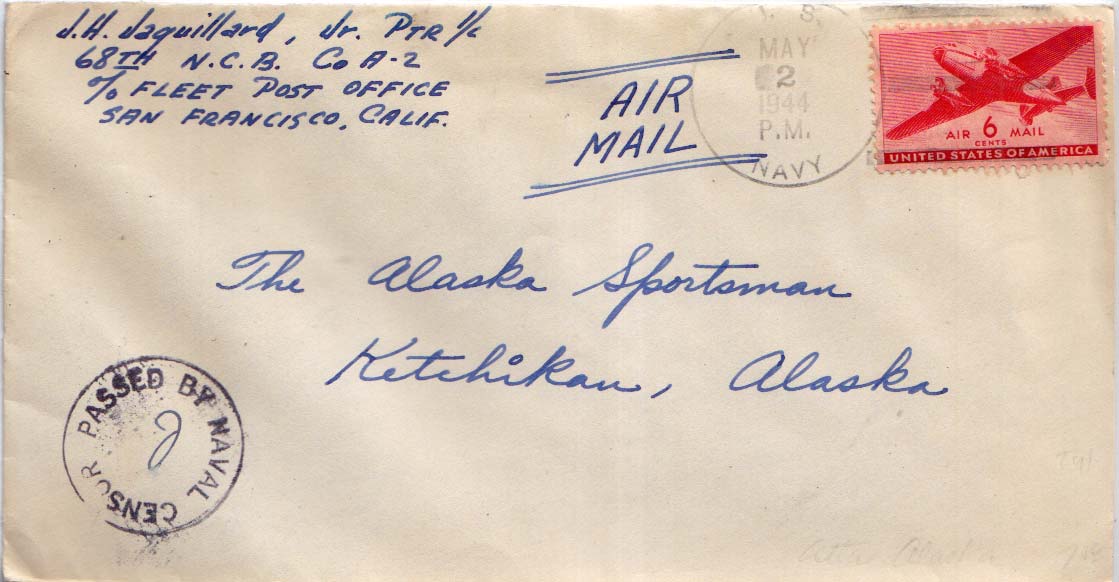 J.H. Jaquillard, Jr. PTR 1/c
68TH N.C.B. Co A-2
c/o FLEET POST OFFICE
SAN FRANCISCO, CALIF.
AIR
MAIL
U. S.
MAY
2
1944
P.M.
NAVY
AIR 6 MAIL
CENTS
UNITED STATES OF AMERICA
The Alaska Sportsman
Ketchikan, Alaska
PASSED BY NAVAL CENSOR
Attu Alaska